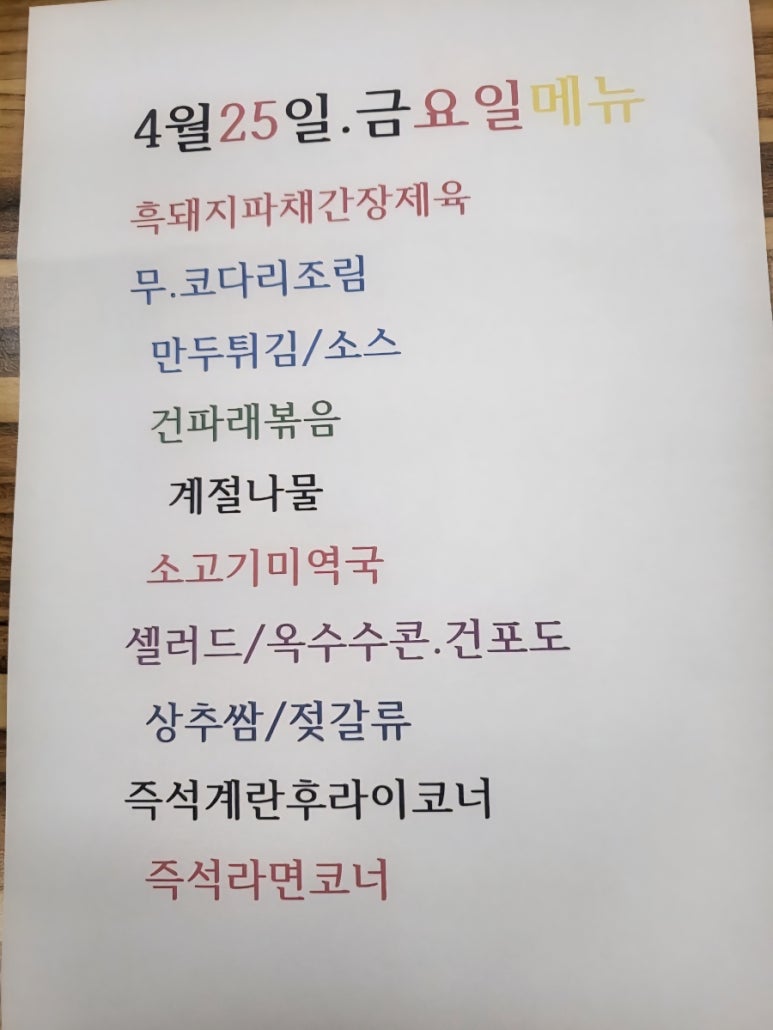 4월25일.금요일메뉴
흑돼지파채간장제육
무.코다리조림
만두튀김/소스
건파래볶음
계절나물
소고기미역국
셀러드/옥수수콘.건포도
상추쌈/젖갈류
즉석계란후라이코너
즉석라면코너